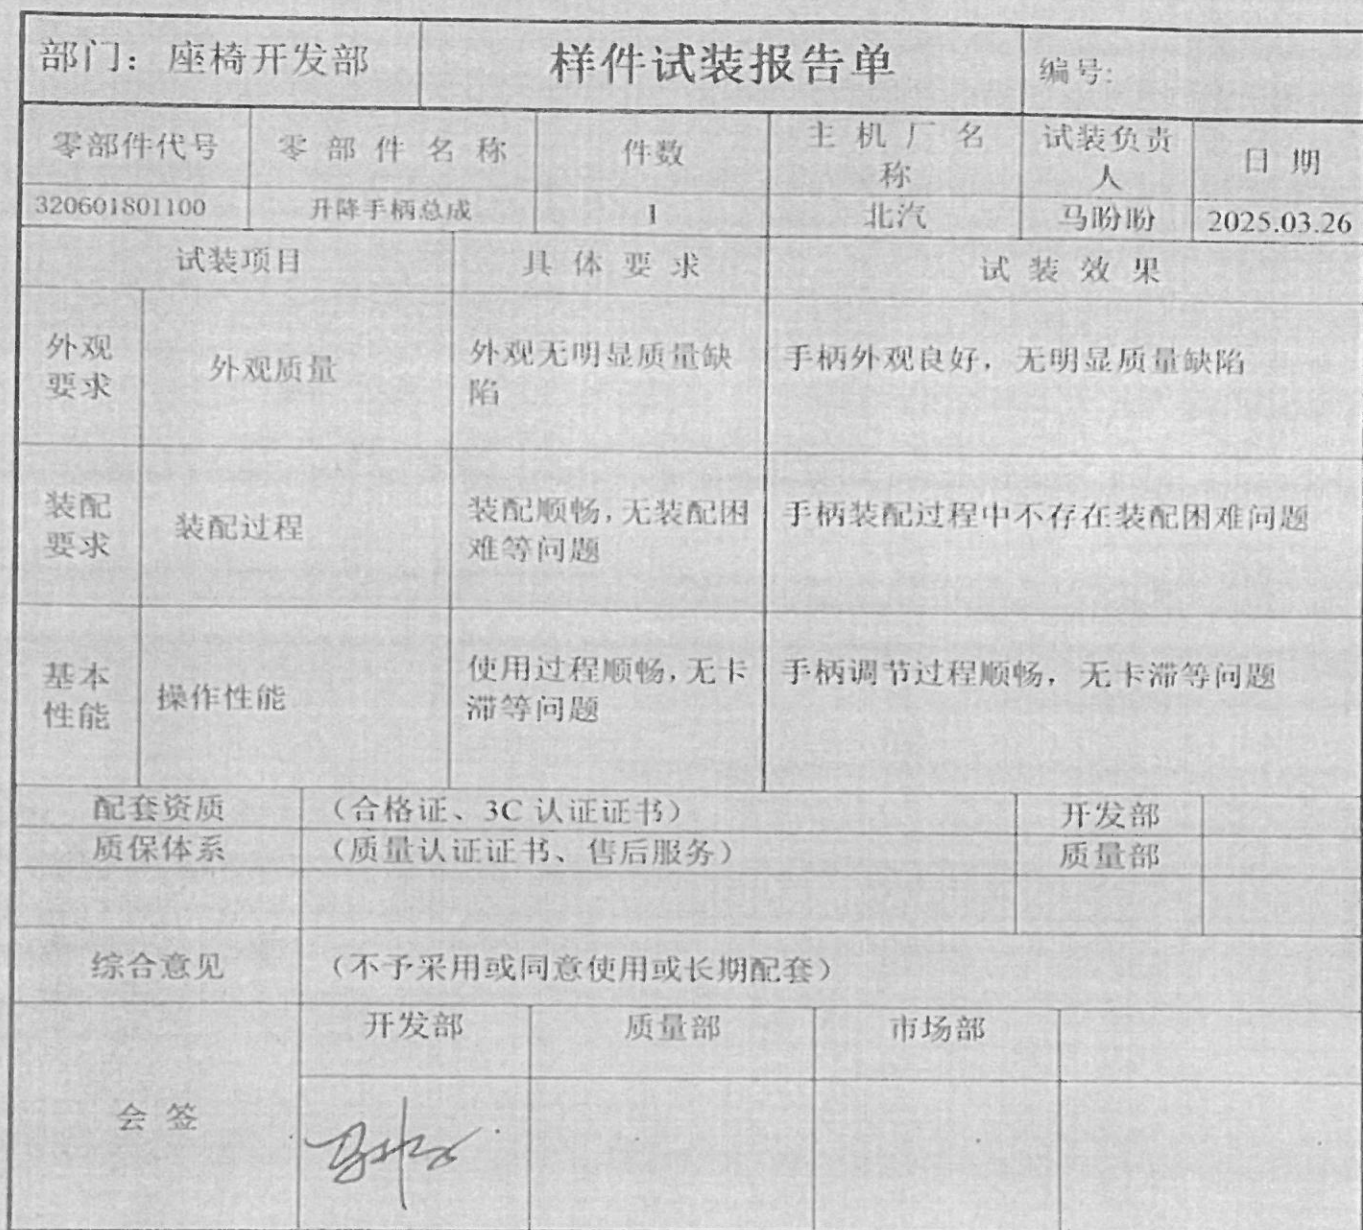 部门：座椅开发部
样件试装报告单
编号:
零部件代号
零部件名称
件数
主机厂名
称
试装负责
人
日期
320601801100
升降手柄总成
1
北汽
马盼盼
2025.03.26
试装项目
具体要求
试装效果
外观
要求
外观质量
外观无明显质量缺
陷
手柄外观良好，无明显质量缺陷
装配
要求
装配过程
装配顺畅，无装配困
难等问题
手柄装配过程中不存在装配困难问题
基本
性能
操作性能
使用过程顺畅，无卡
滞等问题
手柄调节过程顺畅，无卡滞等问题
配套资质
（合格证、3C 认证证书）
开发部
质保体系
（质量认证证书、售后服务）
质量部
综合意见
（不予采用或同意使用或长期配套）
会签
开发部
质量部
市场部